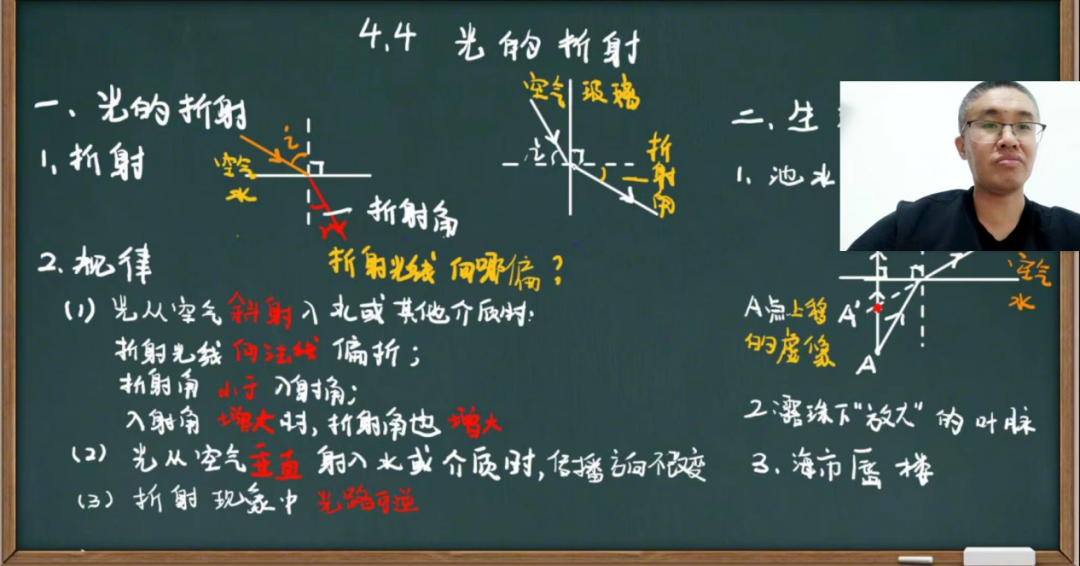 4.4 光的折射
一、光的折射
1、折射
空气
水
i
折射角
r
空气 玻璃
i
折射角
2、规律
折射光线向哪偏?
(1) 光从空气斜射入水或其他介质时:
折射光线向法线偏折;
折射角小于入射角;
入射角增大时,折射角也增大
(2) 光从空气垂直射入水或介质时,传播方向不改变
(3) 折射现象中光路可逆
二、生
1、池水
空气
水
A点上移的虚像
A'
A
2、露珠下"放大"的叶脉
3、海市蜃楼